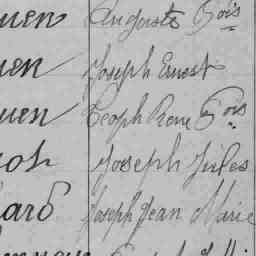 uen Auguste Fois
uen Joseph Ernest
uen Téoph René Fois
Joseph Jules
ard Joseph Jean Marie